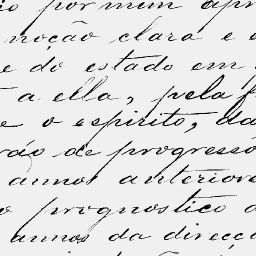 por mim
noção clara e
e do estado em
a ella, pela
e o espirito, da
rão de progresso
annos anteriore
o prognostico
annos da direcç